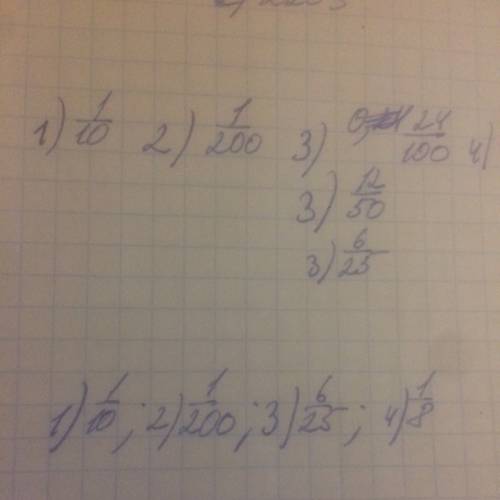 1) 1/10 2) 1/200 3) 24/100 4)
3) 12/50
3) 6/25
1) 1/10 ; 2) 1/200 ; 3) 6/25 ; 4) 1/8